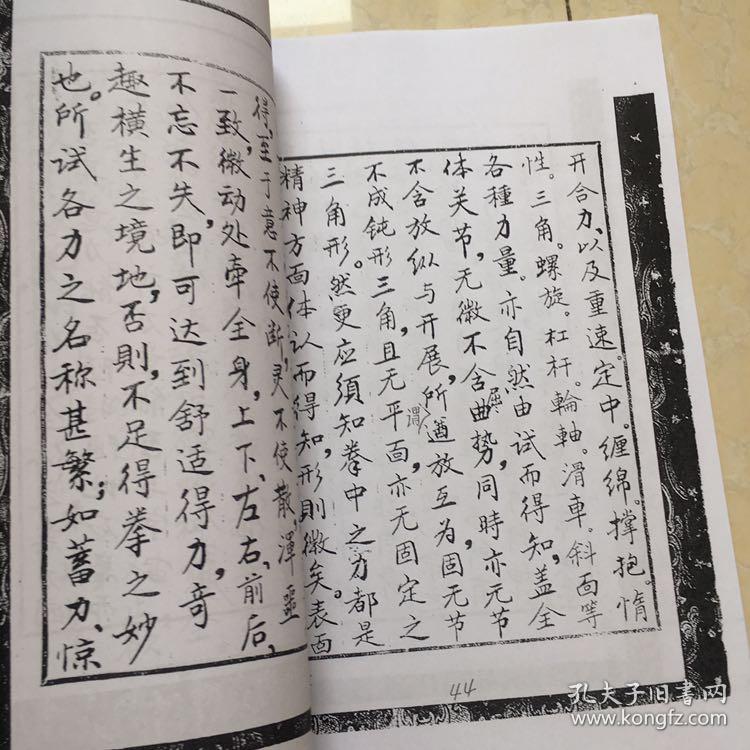 得,至于意不使断,灵不使散,渾噩
一致,微动处牽全身,上下、左右、前后、
不忘不失,即可达到舒适得力,奇
趣横生之境地,否則,不足得拳之妙
也。所试各力之名称甚繁;如蓄力、惊
开合力、以及重速。定中。缠绵。撑抱。惰
性。三角。螺旋。杠杆。輪軸。滑車。斜面等
各種力量。亦自然由试而得知,盖全
体关节,无微不含屈曲势,同時亦无节
不含放纵与开展,所谓遒放互为,固无节
不成钝形三角,且无平面,亦无固定之
三角形。然更应須知拳中之力都是
精神方面体认而得知,形則微矣。表面
44
孔夫子旧书网
www.kongfz.com